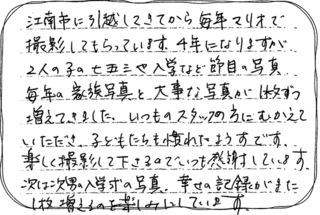 江南市に引越してきてから毎年マリオで
撮影してもらっています。4年になりますが
2人の子の七五三や入学など節目の写真
毎年の家族写真と大事な写真が1枚ずつ
増えてきました。いつものスタッフの方にむかえて
いただき、子どもたちも慣れたようすです。
楽しく撮影して下さるのでいつも感謝しています。
次は次男の入学式の写真。幸せの記録がまた
1枚増えるのを楽しみにしています。